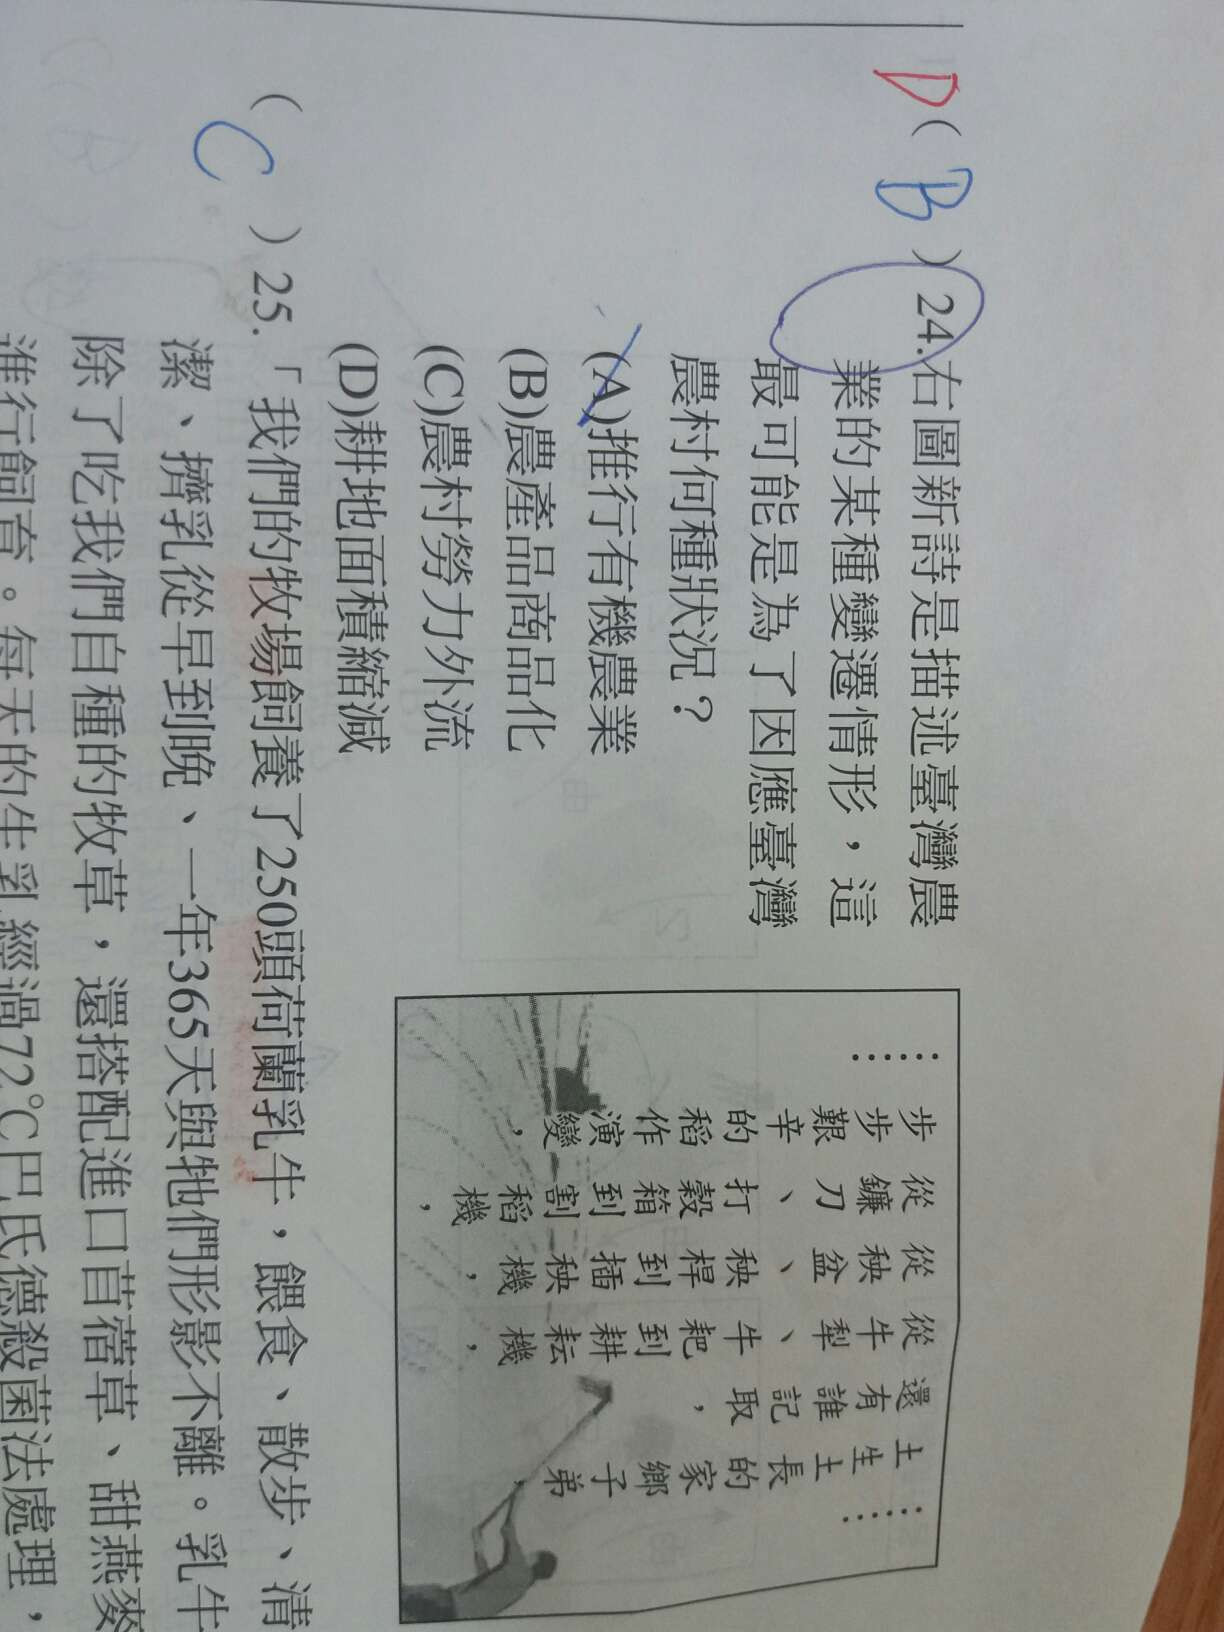 D( B )24.右圖新詩是描述臺灣農
業的某種變遷情形，這
最可能是為了因應臺灣
農村何種狀況？
(A)推行有機農業
(B)農產品商品化
(C)農村勞力外流
(D)耕地面積縮減
……
土生土長的家鄉子弟，
還有誰記取，
從牛犁、牛耙到耕耘機，
從秧盆、秧桿到插秧機，
從鐮刀、打穀箱到割稻機，
步步艱辛的稻作演變，
……
( C )25.「我們的牧場飼養了250頭荷蘭乳牛，餵食、散步、清
潔、擠乳從早到晚、一年365天與牠們形影不離。乳牛
除了吃我們自種的牧草，還搭配進口苜蓿草、甜燕麥
進行飼育。每天的生乳經過72℃巴氏德殺菌法處理，